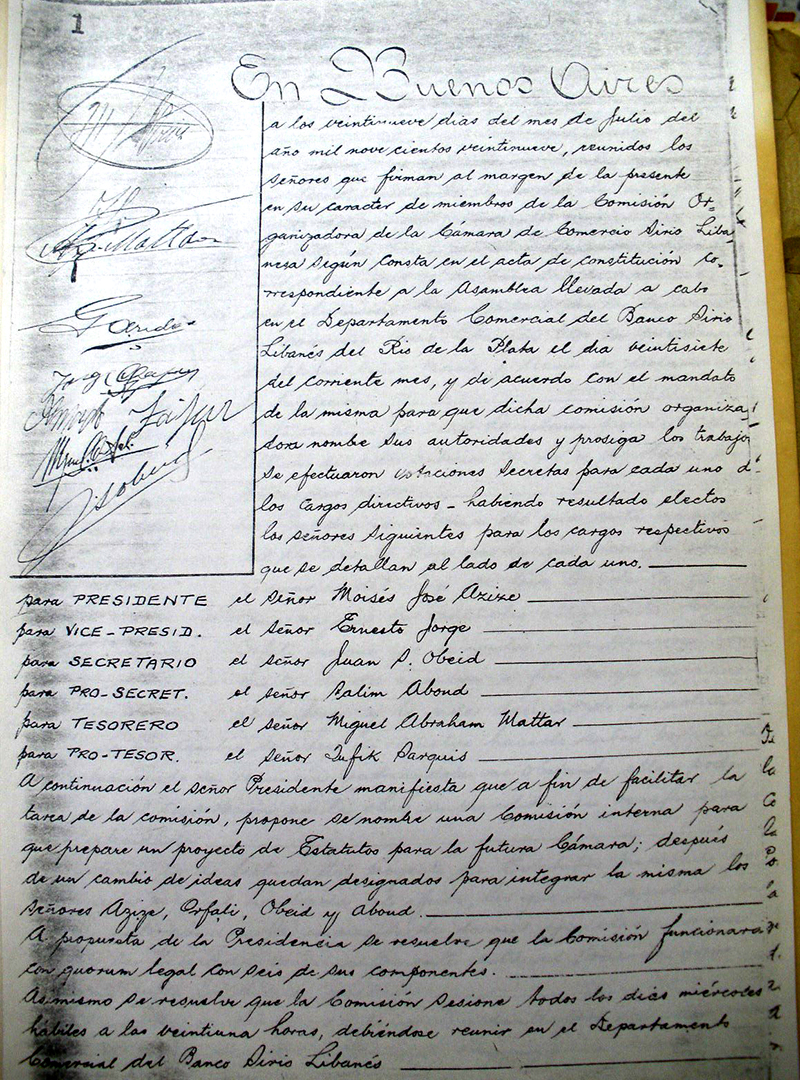 1
En Buenos Aires
a los veintinueve dias del mes de Julio del
año mil nove cientos veintinueve, reunidos los
señores que firman al margen de la presente
en su caracter de miembros de la Comisión Or-
ganizadora de la Cámara de Comercio Sirio Liba-
nesa según consta en el acta de constitución co-
rrespondiente a la Asamblea llevada a cabo
en el Departamento Comercial del Banco Sirio
Libanés del Rio de la Plata el dia veintisiete
del corriente mes, y de acuerdo con el mandato
de la misma para que dicha comisión organiza-
dora nombre sus autoridades y prosiga los trabajos
se efectuaron votaciones secretas para cada uno d
los cargos directivos - habiendo resultado electos
los señores siguientes para los cargos respectivos
que se detallan al lado de cada uno.
para PRESIDENTE el señor Moisés José Azize
para VICE-PRESID. el señor Ernesto Jorge
para SECRETARIO el señor Juan S. Obeid
para PRO-SECRET. el señor Salim Aboud
para TESORERO el señor Miguel Abraham Mattar
para PRO-TESOR. el señor Tufik Sarquis
A continuación el señor Presidente manifiesta que a fin de facilitar la
tarea de la comisión, propone se nombre una Comisión interna para
que prepare un proyecto de Estatutos para la futura Cámara; después
de un cambio de ideas quedan designados para integrar la misma los
señores Azize, Orfali, Obeid y Aboud.
A propuesta de la Presidencia se resuelve que la Comisión funcionará
con quorum legal con seis de sus componentes.
Asimismo se resuelve que la Comisión sesione todos los dias miércoles
hábiles a las veintiuna horas, debiéndose reunir en el Departamento
Comercial del Banco Sirio Libanés